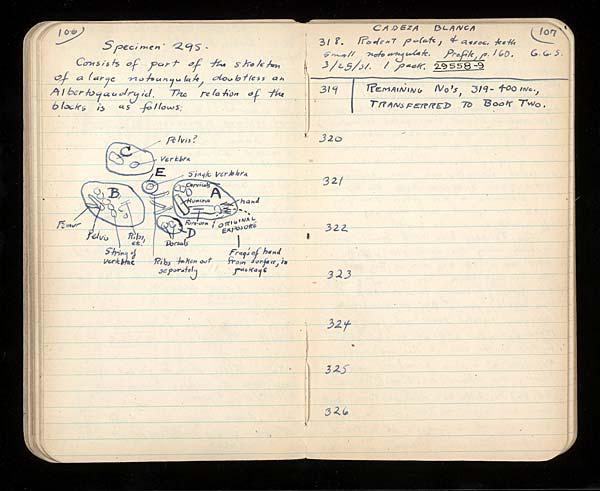 106
Specimen 295.
Consists of part of the skeleton
of a large notoungulate, doubtless an
Albertogaudryid. The relation of the
blocks is as follows:
Pelvis?
C
Vertebra
E
Single vertebra
Cervicals
A
B
Humerus
hand
Forearm
ORIGINAL
EXPOSURE
D
Femur
Pelvis
Ribs,
etc.
Dorsals
String of
vertebrae
Ribs taken out
separately
Frags of hand
from surface, in
package
CADEZA BLANCA
107
318. Rodent palate, & assoc. teeth
small notoungulate. Profile, p. 160. G.G.S.
3/25/31. 1 pack. 29558-9
319 REMAINING No's, 319-400 inc.,
TRANSFERRED TO BOOK TWO.
320
321
322
323
324
325
326